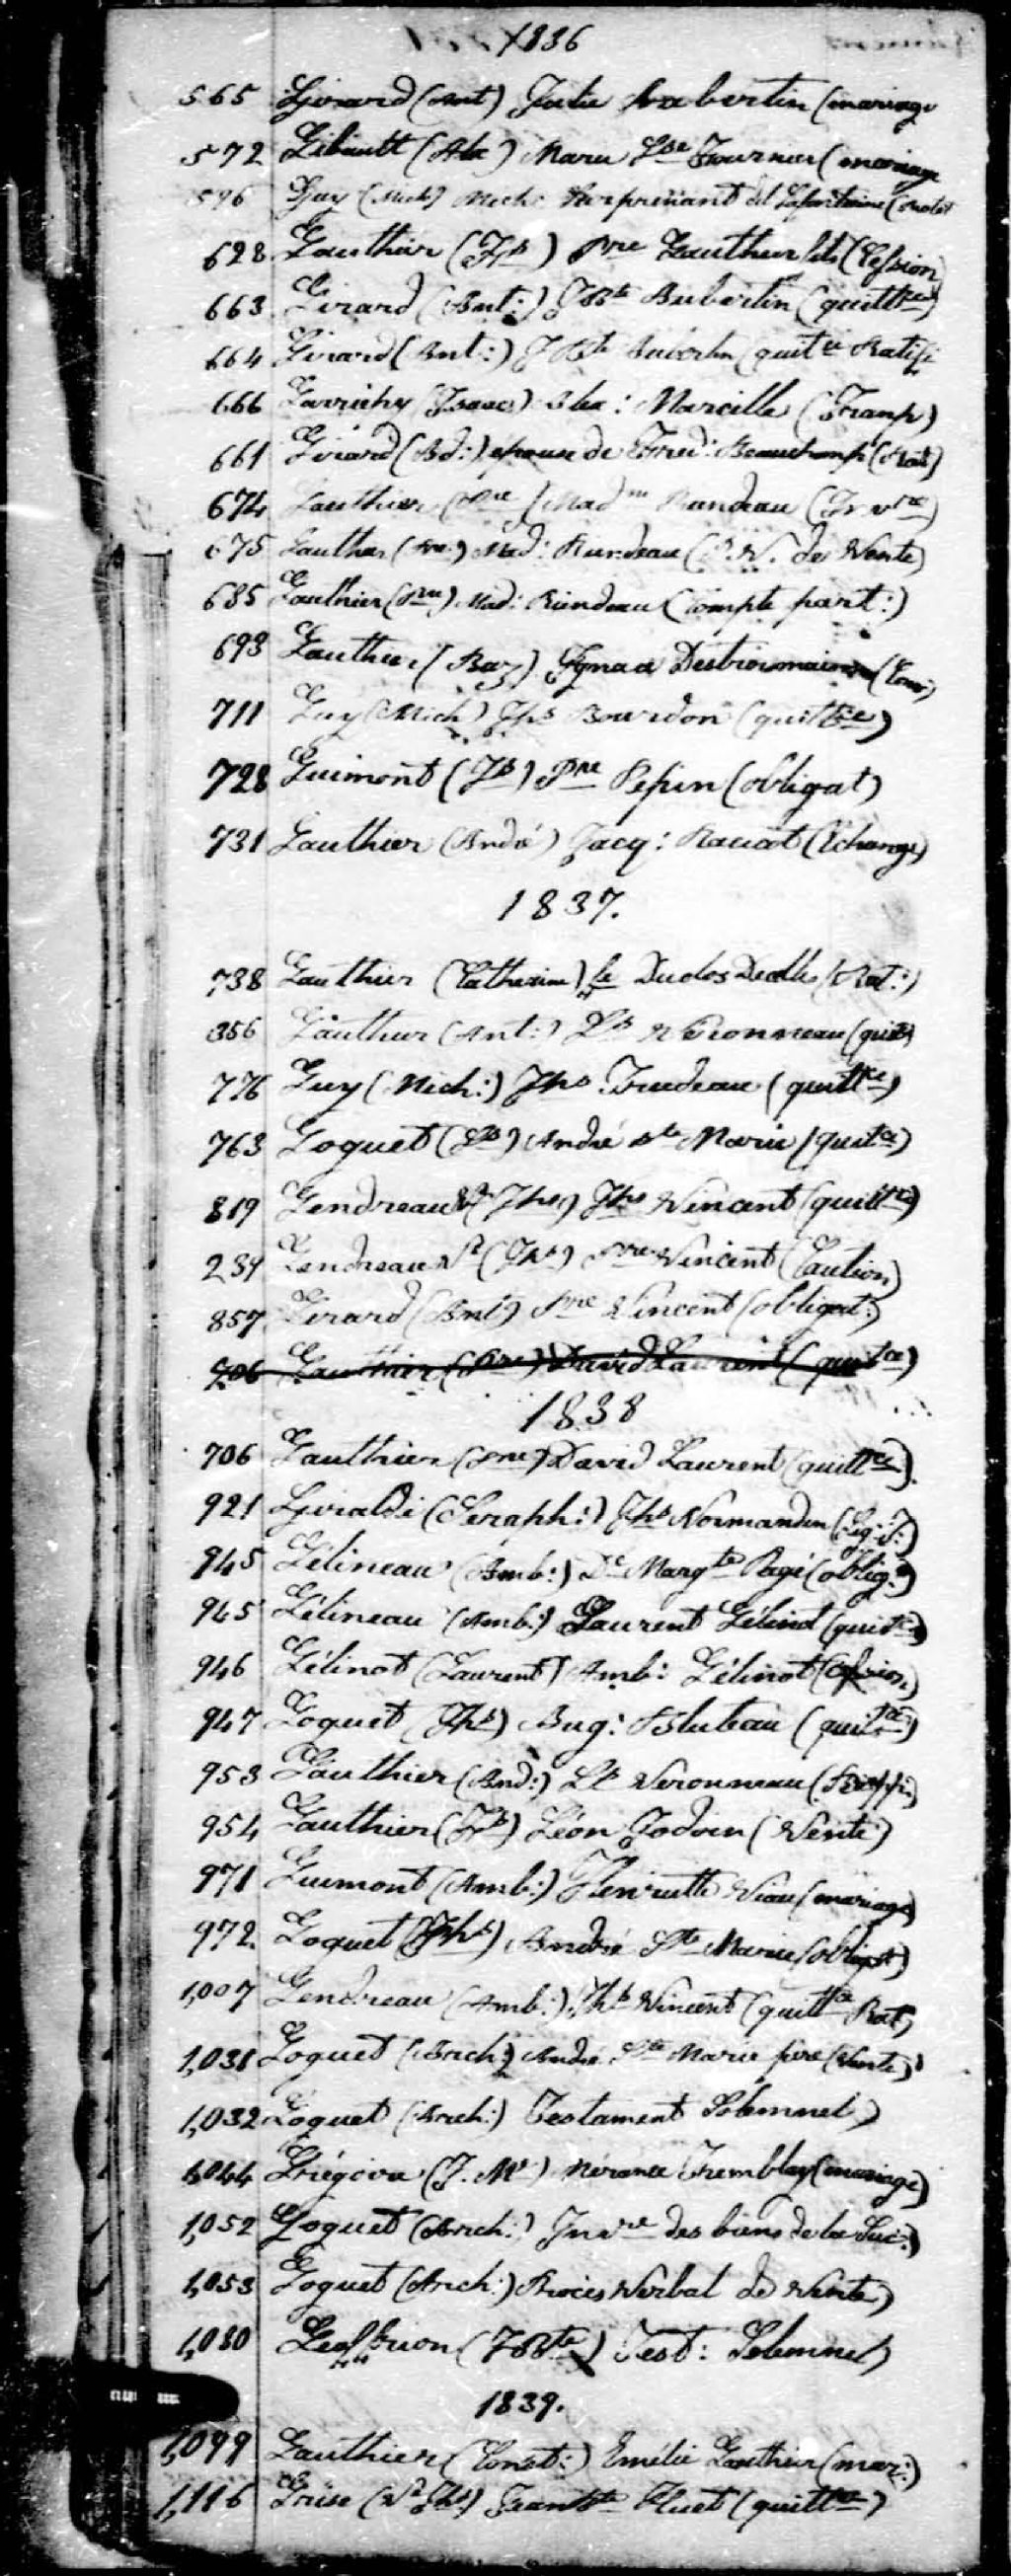 1836
565 Girard (Ant) Julie Aubertin (mariage
572 Gibault (Alex) Marie Lse Fournier (mariage
596 Guy (Mich) Mich: Surprenant dit Lafontaine
628 Gauthier (Jh) Pre Gauthier fils (Cession)
663 Girard (Ant:) J Bte Aubertin (quittce)
664 Girard (Ant:) J Bte Aubertin (quitce Ratifi
666 (Isaac) Alex: Marcille (Transp)
661 Girard (Ad:) épouse de Fred: Beauchamp (Rati)
674 Gauthier (Pre) Madne Riendeau (Invre)
675 Gauthier (Pre) Mad: Riendeau (P.V. de Vente)
685 Gauthier (Pre) Mad: Riendeau (Compte part:)
693 Gauthier (Baz) Ignace
711 Guy (Mich) Jhs Bourdon (quittce)
728 Guimont (Js) Pre Pepin (obligat)
731 Gauthier (André) Jacq: Racicot (Echange)
1837.
738 Gauthier (Catherine) fe Duclos Decelles (Rat:)
356 Gauthier (Ant:) Ls Véronneau (quitce)
776 Guy (Mich:) Jhs Trudeau (quittce)
763 Goguet (Js) André Ste Marie (quitce)
819 Gendreau (Jhs) Jhs Vincent (quittce)
239 Gendreau (Jhs) Pre Vincent (Caution)
857 Girard (Ant) Pre Vincent (obligat:)
706 Gauthier (Pre) David Laurent (quitce)
1838
706 Gauthier (Pre) David Laurent (quittce)
921 Giraldi (Seraph:) Jhs Normandin
945 Gélineau (Amb:) De Margte Pagé (oblig:)
945 Gélineau (Amb:) Laurent Gélinot (quitce)
946 Gélinot (Laurent) Amb: Gélinot (Cession)
947 Goguet (Jhs) Aug: Bluteau (quitce)
953 Gauthier (And:) Ls Véronneau
954 Gauthier (Jh) Léon Jodoin (Vente)
971 Guimont (Amb:) Henriette Viau (mariage)
972. Goguet (Jhs) André Ste Marie (obligat)
1,007 Gendreau (Amb:) Jhs Vincent (quittce Rat)
1,031 Goguet (Arch:) André Ste Marie père (Vente)
1,032 Goguet (Arch:) Testament Solemnel)
1,044 Grégoire (J. Me) Mérance Tremblay (mariage)
1,052 Goguet (Arch:) Invre des biens de la Suc:)
1,053 Goguet (Arch:) Procès Verbal de Vente)
1,080 Geoffrion (J Bte) Test: Solemnel)
1839.
1,099 Gauthier (Const:) Emélie Gauthier (mar:)
1,116 Grisé (Ve Jhs) Jean Bte Huet (quittce)